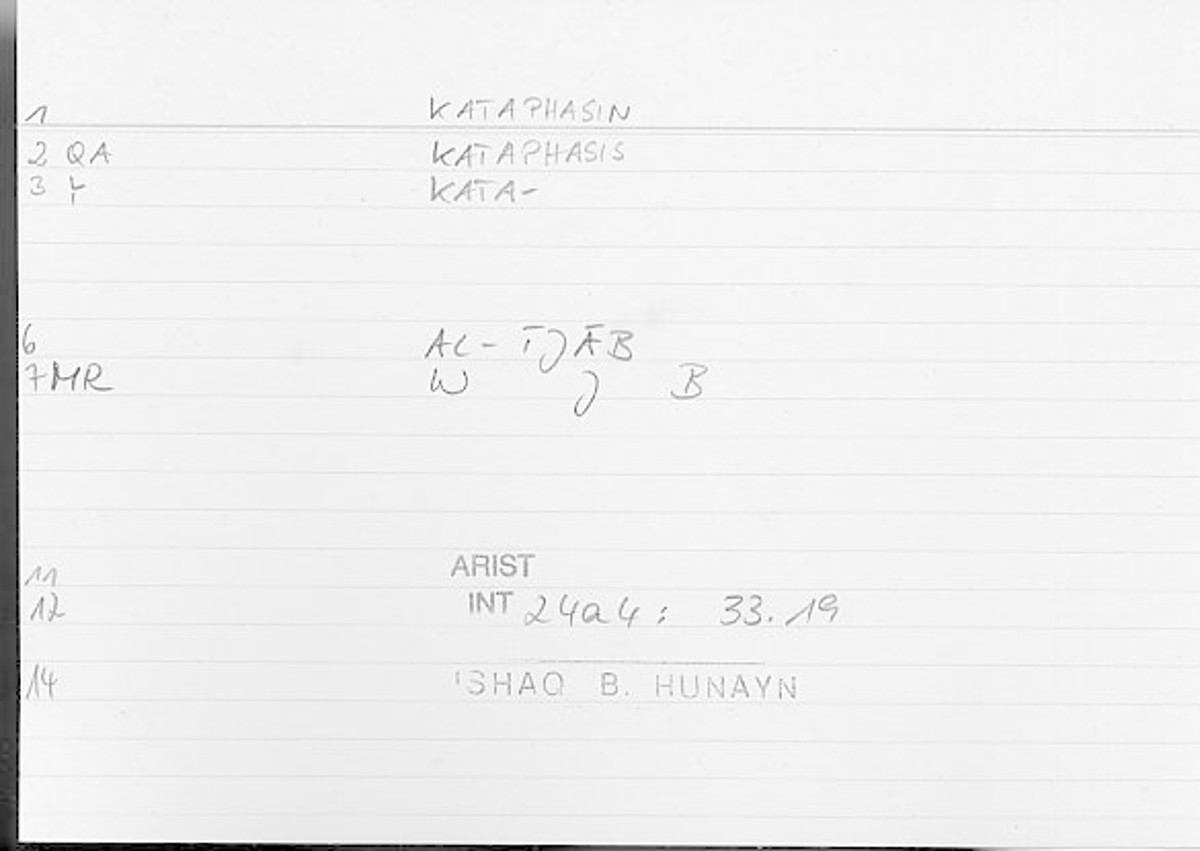 1 KATAPHASIN
2 QA KATAPHASIS
3 KATA-
6 AL-ĪJĀB
7 MR W J B
11 ARIST
12 INT 24a4: 33.19
14 ISHAQ B. HUNAYN